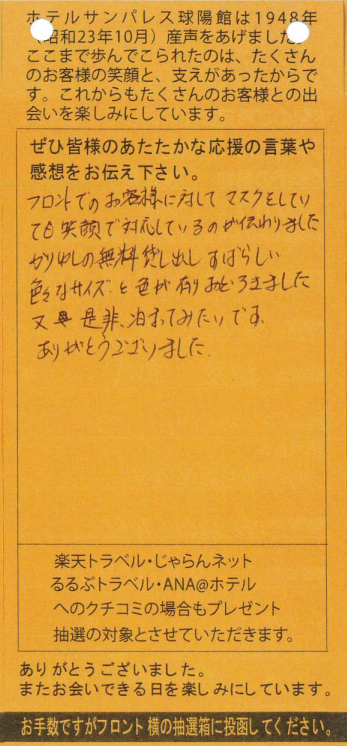 ホテルサンパレス球陽館は1948年
（昭和23年10月）産声をあげました。
ここまで歩んでこられたのは、たくさん
のお客様の笑顔と、支えがあったからで
す。これからもたくさんのお客様との出
会いを楽しみにしています。
ぜひ皆様のあたたかな応援の言葉や
感想をお伝え下さい。
フロントでのお客様に対して マスクをしてい
ても笑顔で対応しているのが伝わりました
かりゆしの無料貸し出し すばらしい
色々なサイズと色が有りおどろきました
又 是非、泊まってみたいです。
ありがとうございました。
楽天トラベル・じゃらんネット
るるぶトラベル・ANA@ホテル
へのクチコミの場合もプレゼント
抽選の対象とさせていただきます。
ありがとうございました。
またお会いできる日を楽しみにしています。
お手数ですがフロント横の抽選箱に投函してください。